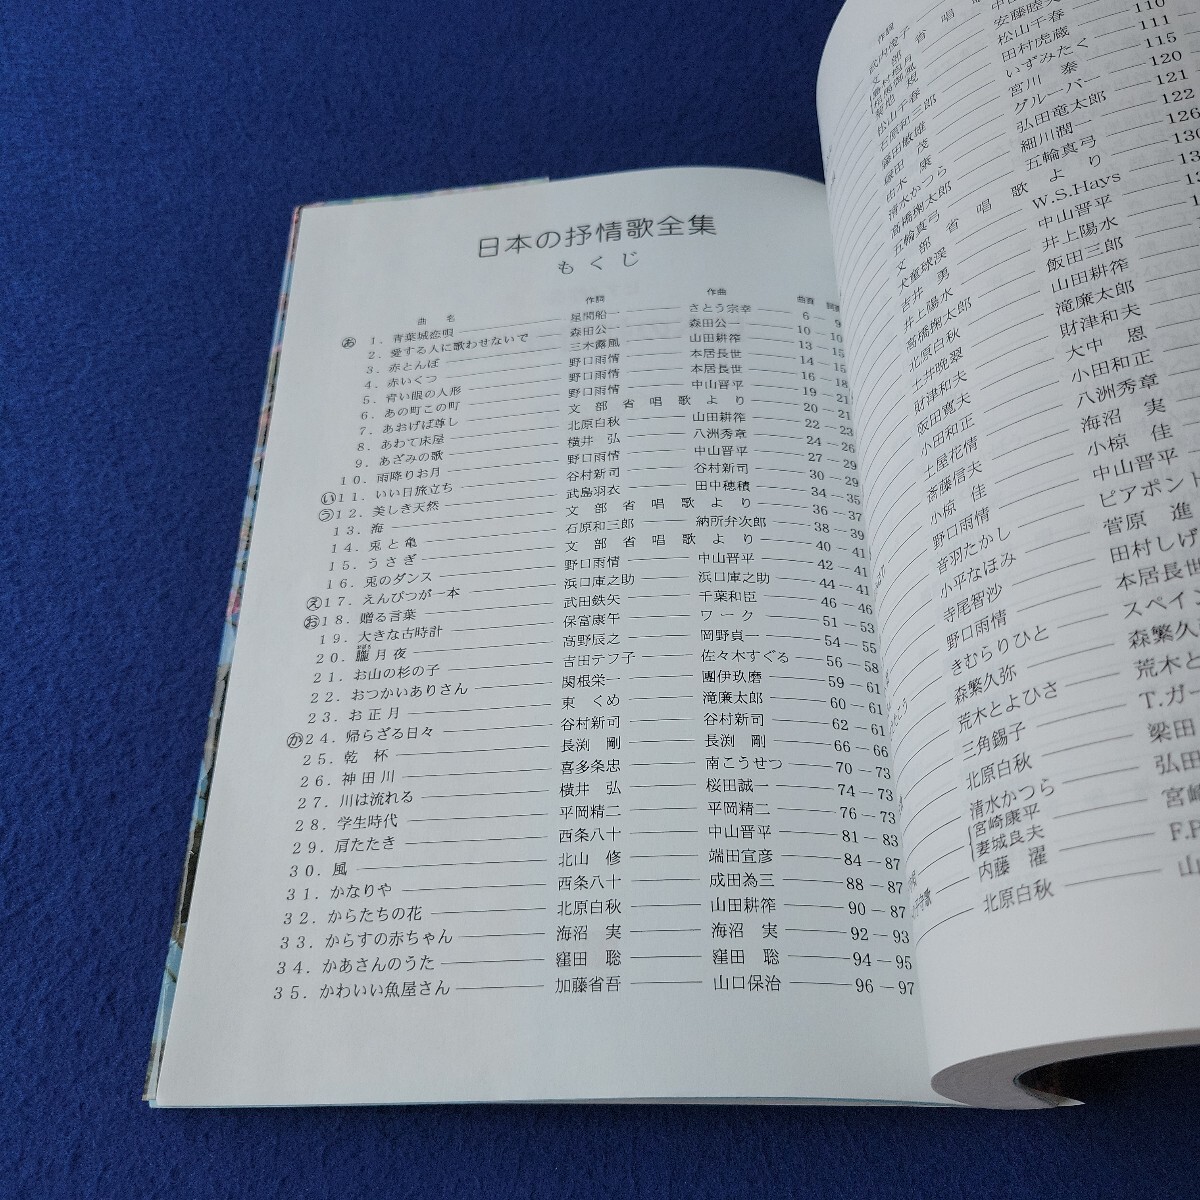 日本の抒情歌全集
もくじ
曲 名 作詞 作曲 曲頁
あ 1．青葉城恋唄 星間船一 さとう宗幸 6－9
2．愛する人に歌わせないで 森田公一 森田公一 10－10
3．赤とんぼ 三木露風 山田耕筰 13－15
4．赤いくつ 野口雨情 本居長世 14－15
5．青い眼の人形 野口雨情 本居長世 16－18
6．あの町この町 野口雨情 中山晋平 19－21
7．あおげば尊し 文部省唱歌より 20－21
8．あわて床屋 北原白秋 山田耕筰 22－23
9．あざみの歌 横井 弘 八洲秀章 24－26
10．雨降りお月 野口雨情 中山晋平 27－29
い 11．いい日旅立ち 谷村新司 谷村新司 30－29
う 12．美しき天然 武島羽衣 田中穂積 34－35
13．海 文部省唱歌より 36－37
14．兎と亀 石原和三郎 納所弁次郎 38－39
15．うさぎ 文部省唱歌より 40－41
16．兎のダンス 野口雨情 中山晋平 42－41
え 17．えんぴつが一本 浜口庫之助 浜口庫之助 44－41
お 18．贈る言葉 武田鉄矢 千葉和臣 46－46
19．大きな古時計 保富康午 ワーク 51－53
20．朧月夜 高野辰之 岡野貞一 54－55
21．お山の杉の子 吉田テフ子 佐々木すぐる 56－58
22．おつかいありさん 関根栄一 團伊玖磨 59－61
23．お正月 東 くめ 滝廉太郎 60－61
か 24．帰らざる日々 谷村新司 谷村新司 62－61
25．乾 杯 長渕 剛 長渕 剛 66－66
26．神田川 喜多条忠 南こうせつ 70－73
27．川は流れる 横井 弘 桜田誠一 74－73
28．学生時代 平岡精二 平岡精二 76－73
29．肩たたき 西条八十 中山晋平 81－83
30．風 北山 修 端田宣彦 84－87
31．かなりや 西条八十 成田為三 88－87
32．からたちの花 北原白秋 山田耕筰 90－87
33．からすの赤ちゃん 海沼 実 海沼 実 92－93
34．かあさんのうた 窪田 聡 窪田 聡 94－95
35．かわいい魚屋さん 加藤省吾 山口保治 96－97
作詞
武内俊子
文部省唱
松山千春 松山千春 110
石原和三郎 田村虎蔵 111
篠田敏雄 いずみたく 115
塚田 茂 宮川 泰 120
由木 康 グルーバー 121
清水かつら 弘田竜太郎 122
高橋掬太郎 細川潤一 126
五輪真弓 五輪真弓 130
文部省唱歌より
犬童球渓 W.S.Hays
吉井 勇 中山晋平
井上陽水 井上陽水
高橋掬太郎 飯田三郎
北原白秋 山田耕筰
土井晩翠 滝廉太郎
財津和夫 財津和夫
阪田寛夫 大中 恩
小田和正 小田和正
土屋花情 八洲秀章
斎藤信夫 海沼 実
小椋 佳 小椋 佳
野口雨情 中山晋平
音羽たかし ピアポント
小平なほみ 菅原 進
寺尾智沙 田村しげ
野口雨情 本居長世
きむらりひと スペイン
森繁久弥 森繁久弥
荒木とよひさ 荒木と
三角錫子 T.ガー
北原白秋 梁田
清水かつら 弘田
宮崎康平 宮崎
妻城良夫
内藤 濯 F.P
北原白秋 山